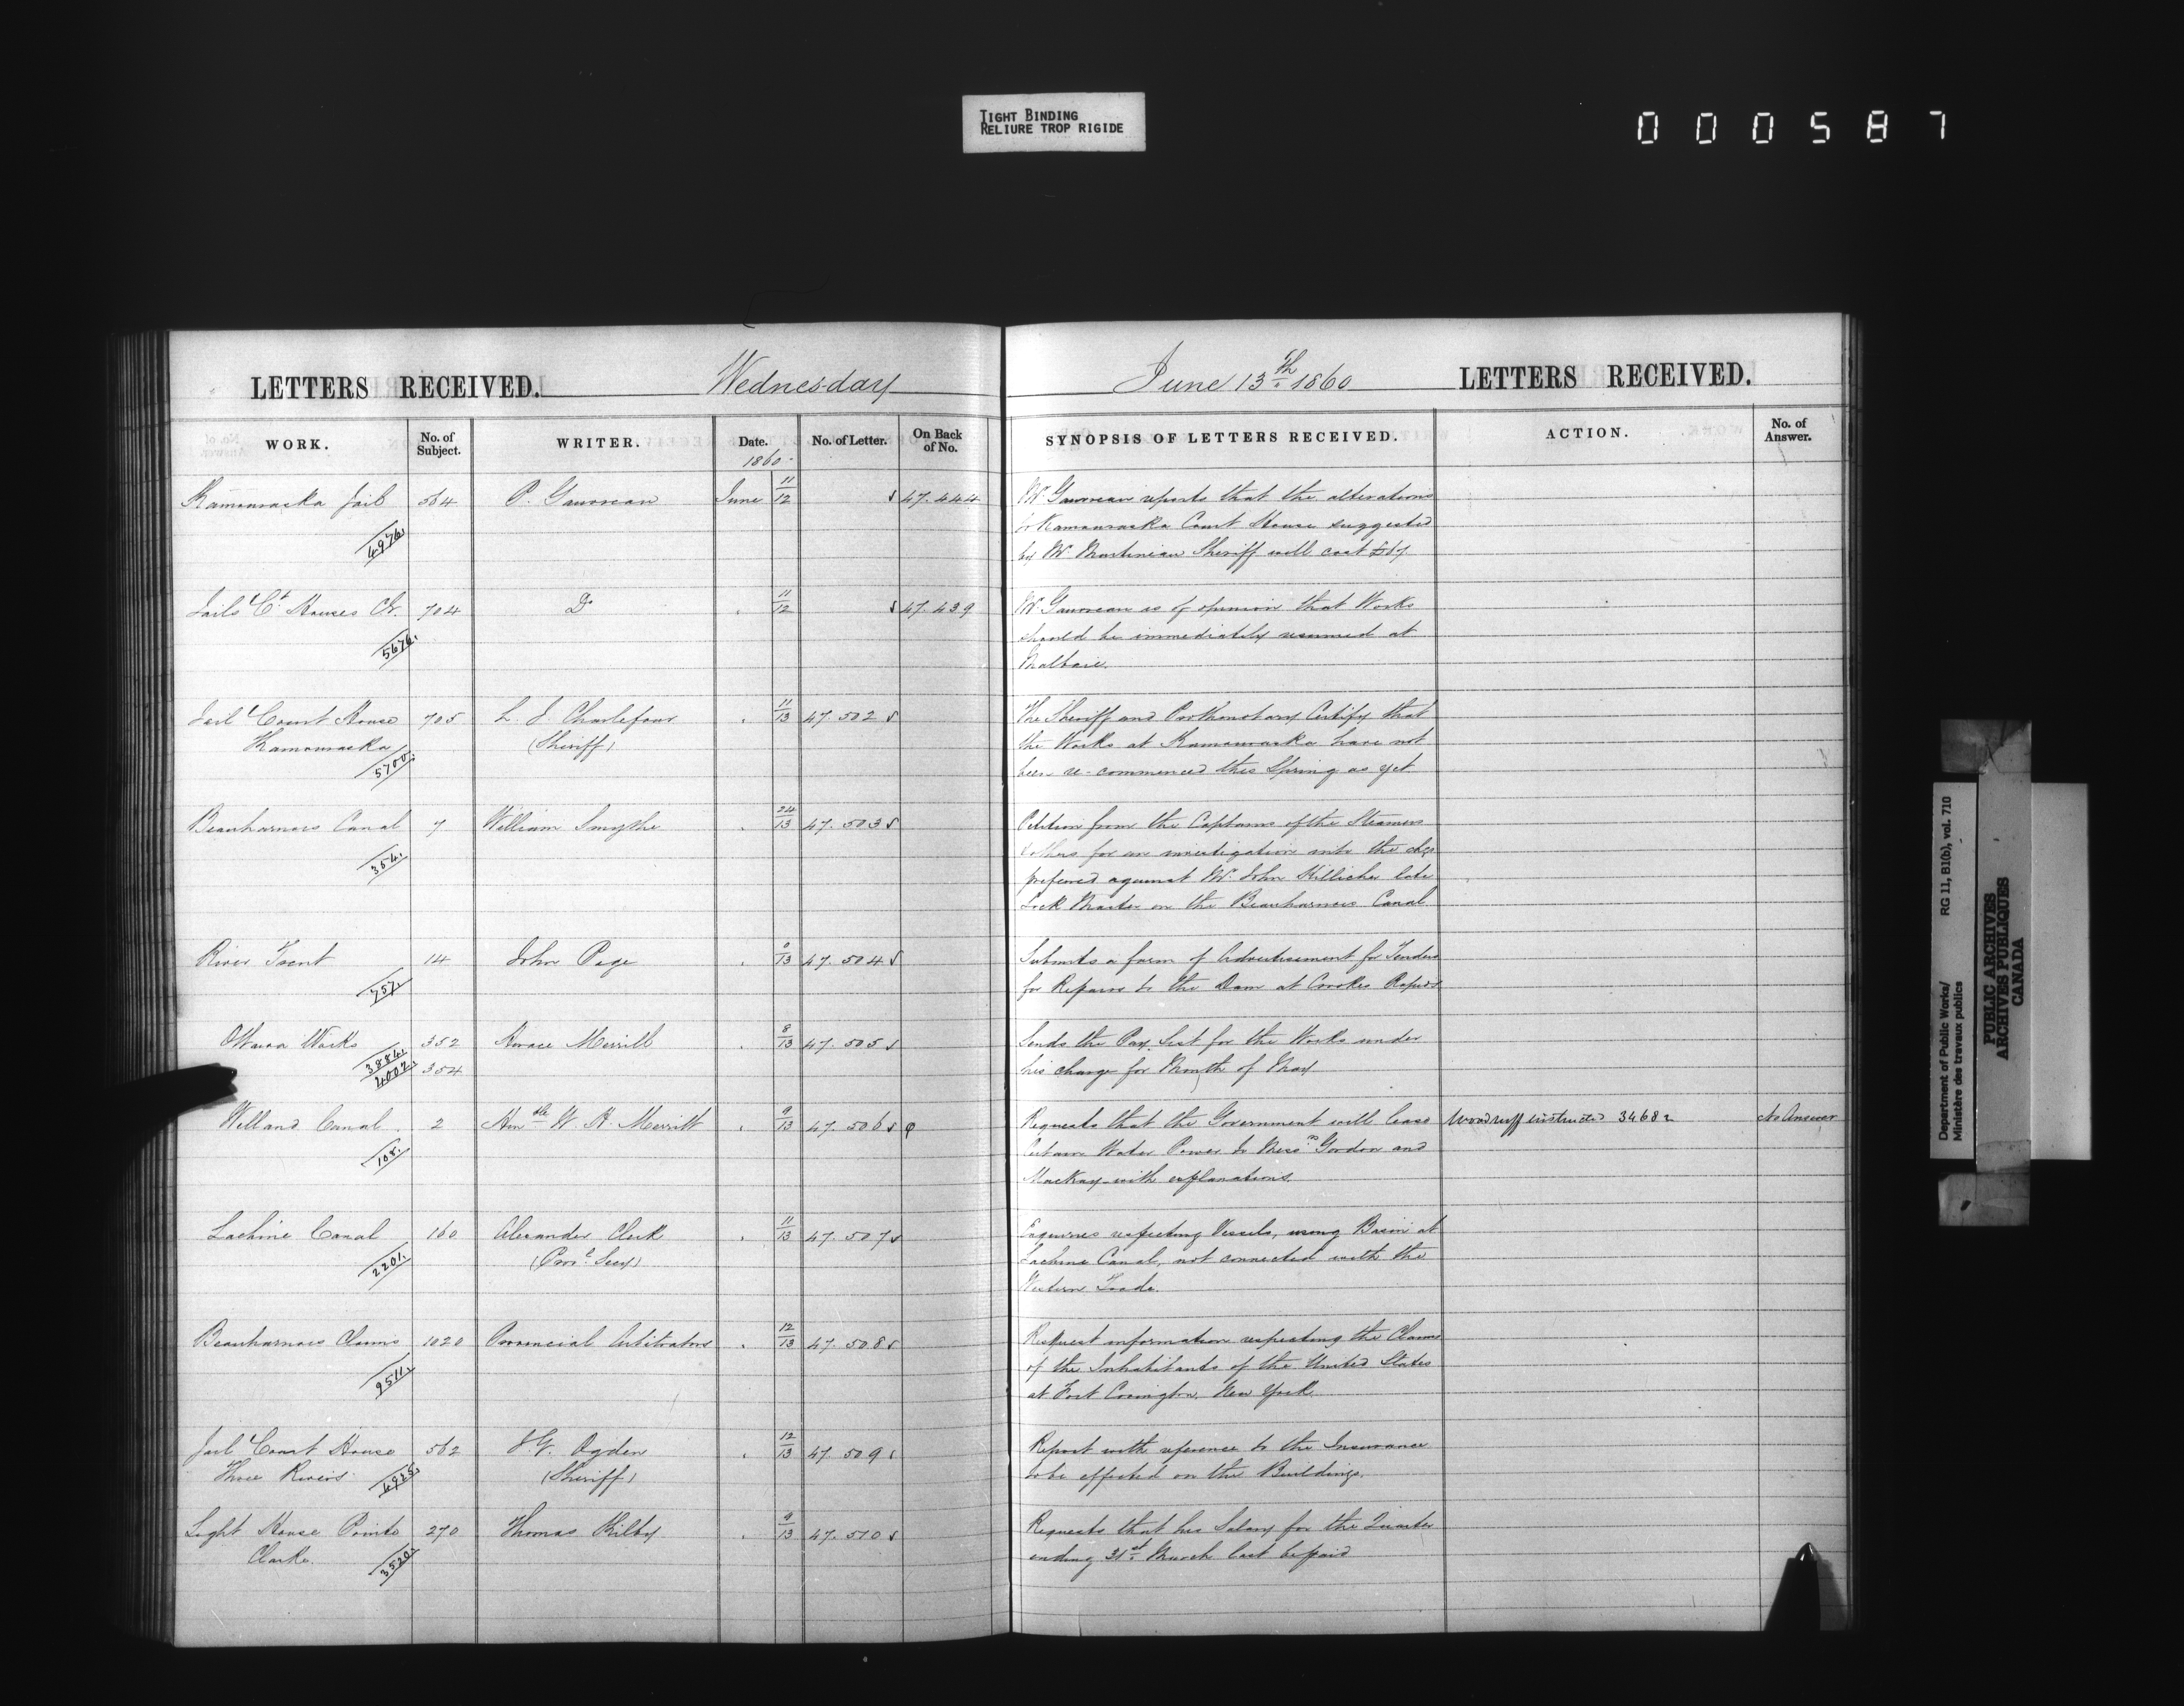 TIGHT BINDING
RELIURE TROP RIGIDE
000587
LETTERS RECEIVED. Wednesday
June 13th 1860 LETTERS RECEIVED.
WORK. No. of Subject. WRITER. Date. No. of Letter. On Back of No.
SYNOPSIS OF LETTERS RECEIVED. ACTION. No. of Answer.
1860
Kamouraska Jail 564 P. Gauvreau June 11/12 47.444
4976
Mr Gauvreau reports that the alterations
to Kamouraska Court House suggested
by Mr Martineau Sheriff will cost
Jails & Ct Houses &c. 704 Do 11/12 47.439
5676
Mr Gauvreau is of opinion that Works
should be immediately resumed at
Malbaie.
Jail & Court House 705 11/13 47.502
Kamouraska (Sheriff)
5700
The Sheriff and Prothonotary Certify that
the Works at Kamouraska have not
been re-commenced this Spring as yet
Beauharnois Canal 7 William Smythe 24/13 47.503
354
Petition from the Captains of the Steamers
& others for an investigation into the chgs
preferred against Mr John late
Lock Master on the Beauharnois Canal
River Trent 14 John Page 0/13 47.504
757
Submits a form of Advertisement for Tenders
for Repairs to the Dam at Crookes Rapids
Ottawa Works 352 Horace Merrill 8/13 47.505
3884
4002 354
Sends the Pay List for the Works under
his charge for Month of May
Welland Canal. 2 Honble W. H. Merritt 9/13 47.506
108
Requests that the Government will lease Woodruff instructed 34682 No Answer
Certain Water Power to Messrs Gordon and
Mackay with explanations.
Lachine Canal 160 Alexander Clerk 11/13 47.507
2201 (Prov. Secy)
Enquires respecting Vessels, using Basin at
Lachine Canal, not connected with the
Western Trade.
Beauharnois Claims 1020 Provincial Arbitrators 12/13 47.508
9511
Request information respecting the Claims
of the Inhabitants of the United States
at Fort Covington, New York.
Jail & Court House 562 Ogden 12/13 47.509
Three Rivers (Sheriff)
Report with reference to the Insurance
to be effected on the Buildings.
Light House Pointe 270 Thomas Kilby 9/13 47.510
Clarke.
3520
Requests that his Salary for the Quarter
ending 31st March last be paid
Department of Public Works/ RG 11, B1(b), vol. 710
Ministère des travaux publics
PUBLIC ARCHIVES
ARCHIVES PUBLIQUES
CANADA